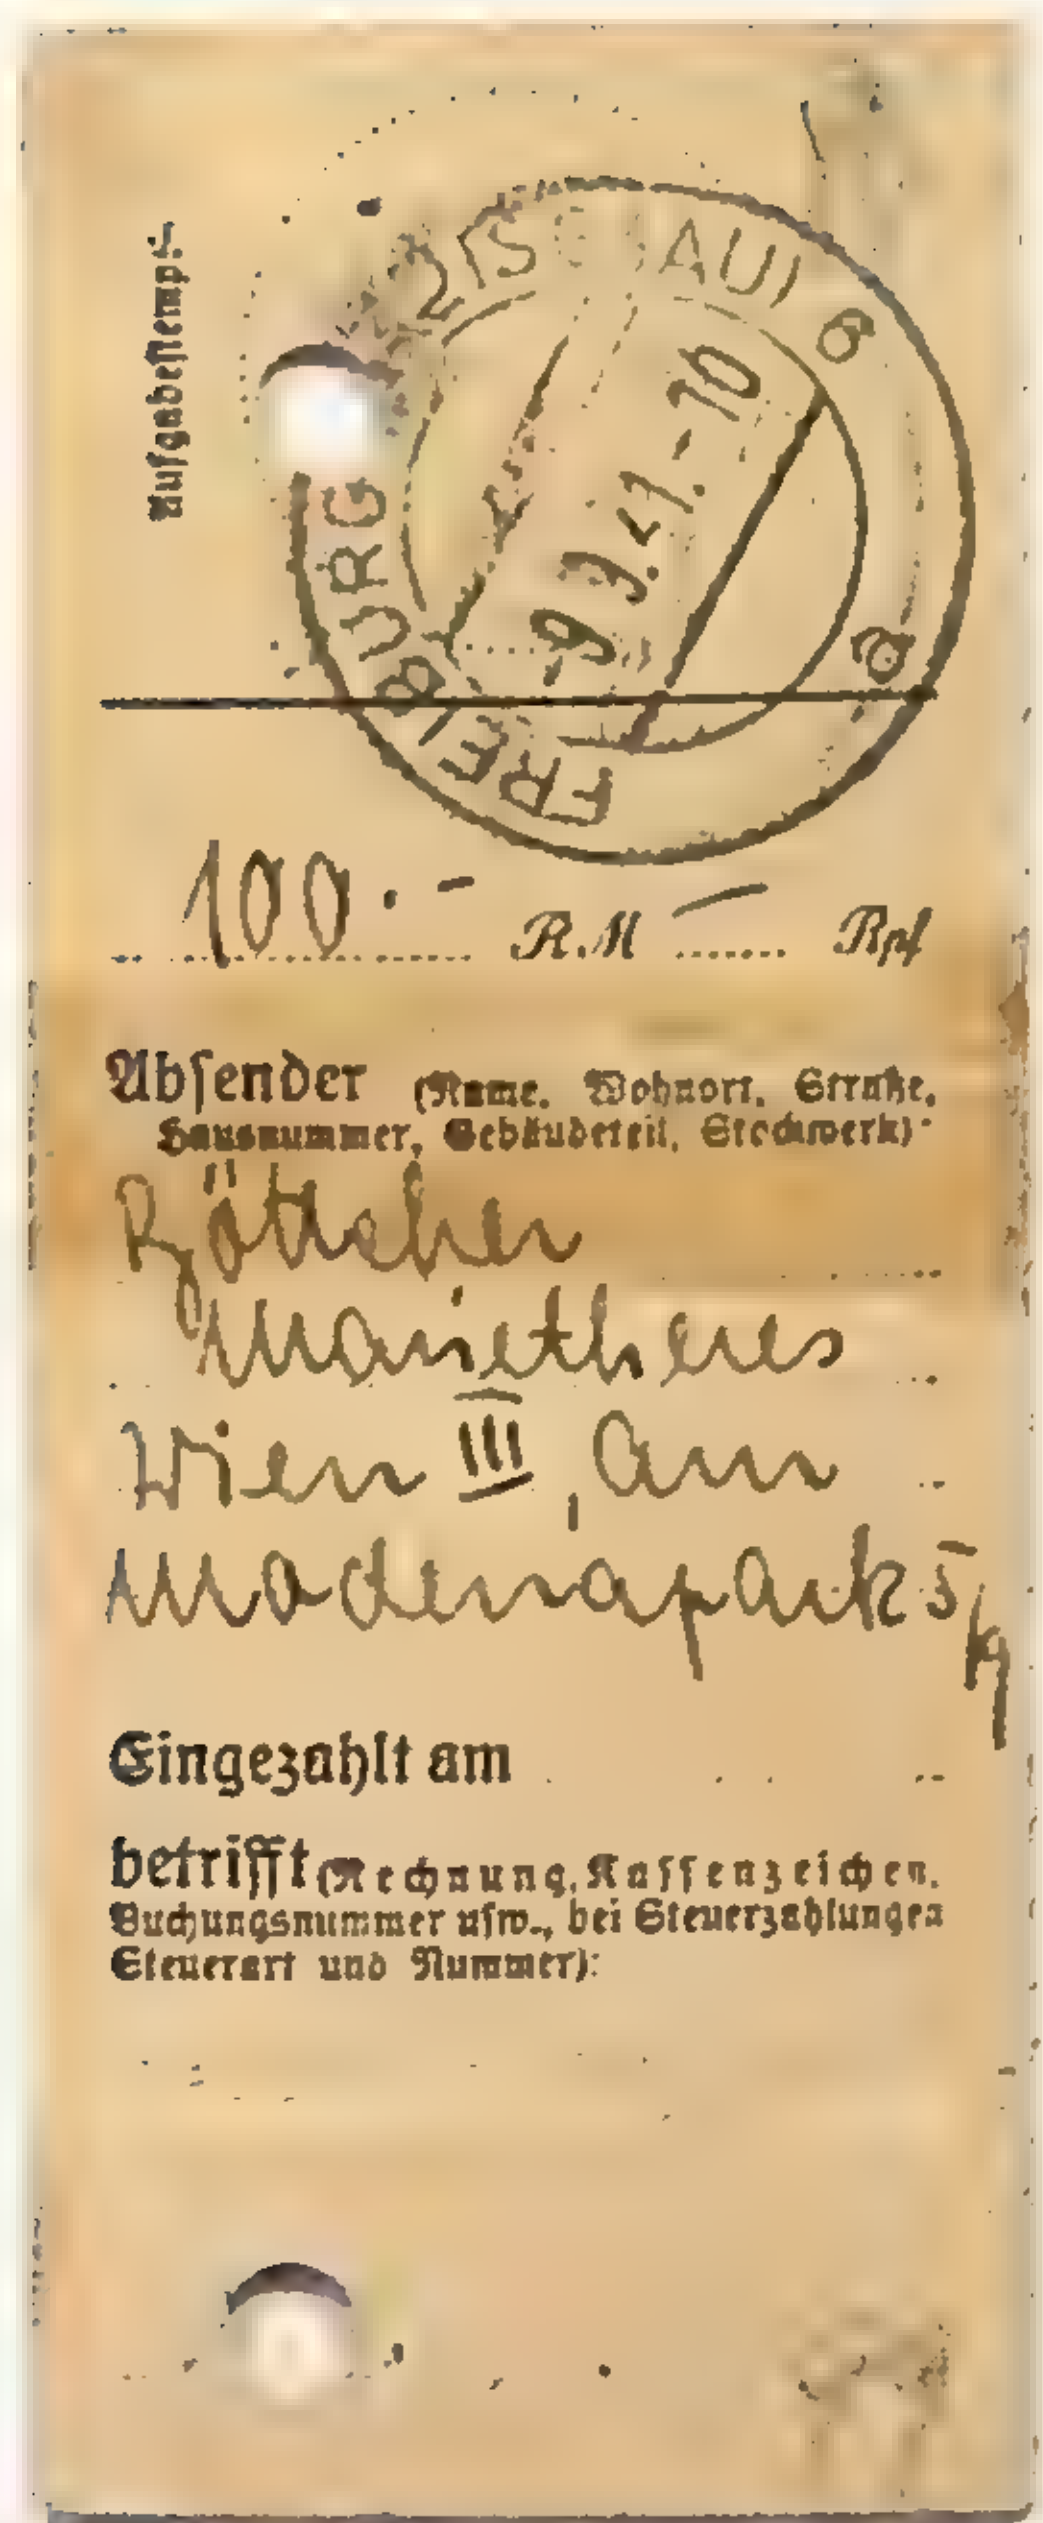 Aufgabestempel
FREIBURG (BREISGAU) 6
a
-9.3.41.-10
100.- R.M — Rpf
Absender (Name, Wohnort, Straße,
Hausnummer, Gebäudeteil, Stockwerk):
Böttcher
Marietheres
Wien III, am
Modenapark 5
Eingezahlt am
betrifft (Rechnung, Kassenzeichen,
Buchungsnummer usw., bei Steuerzahlungen
Steuerart und Nummer):